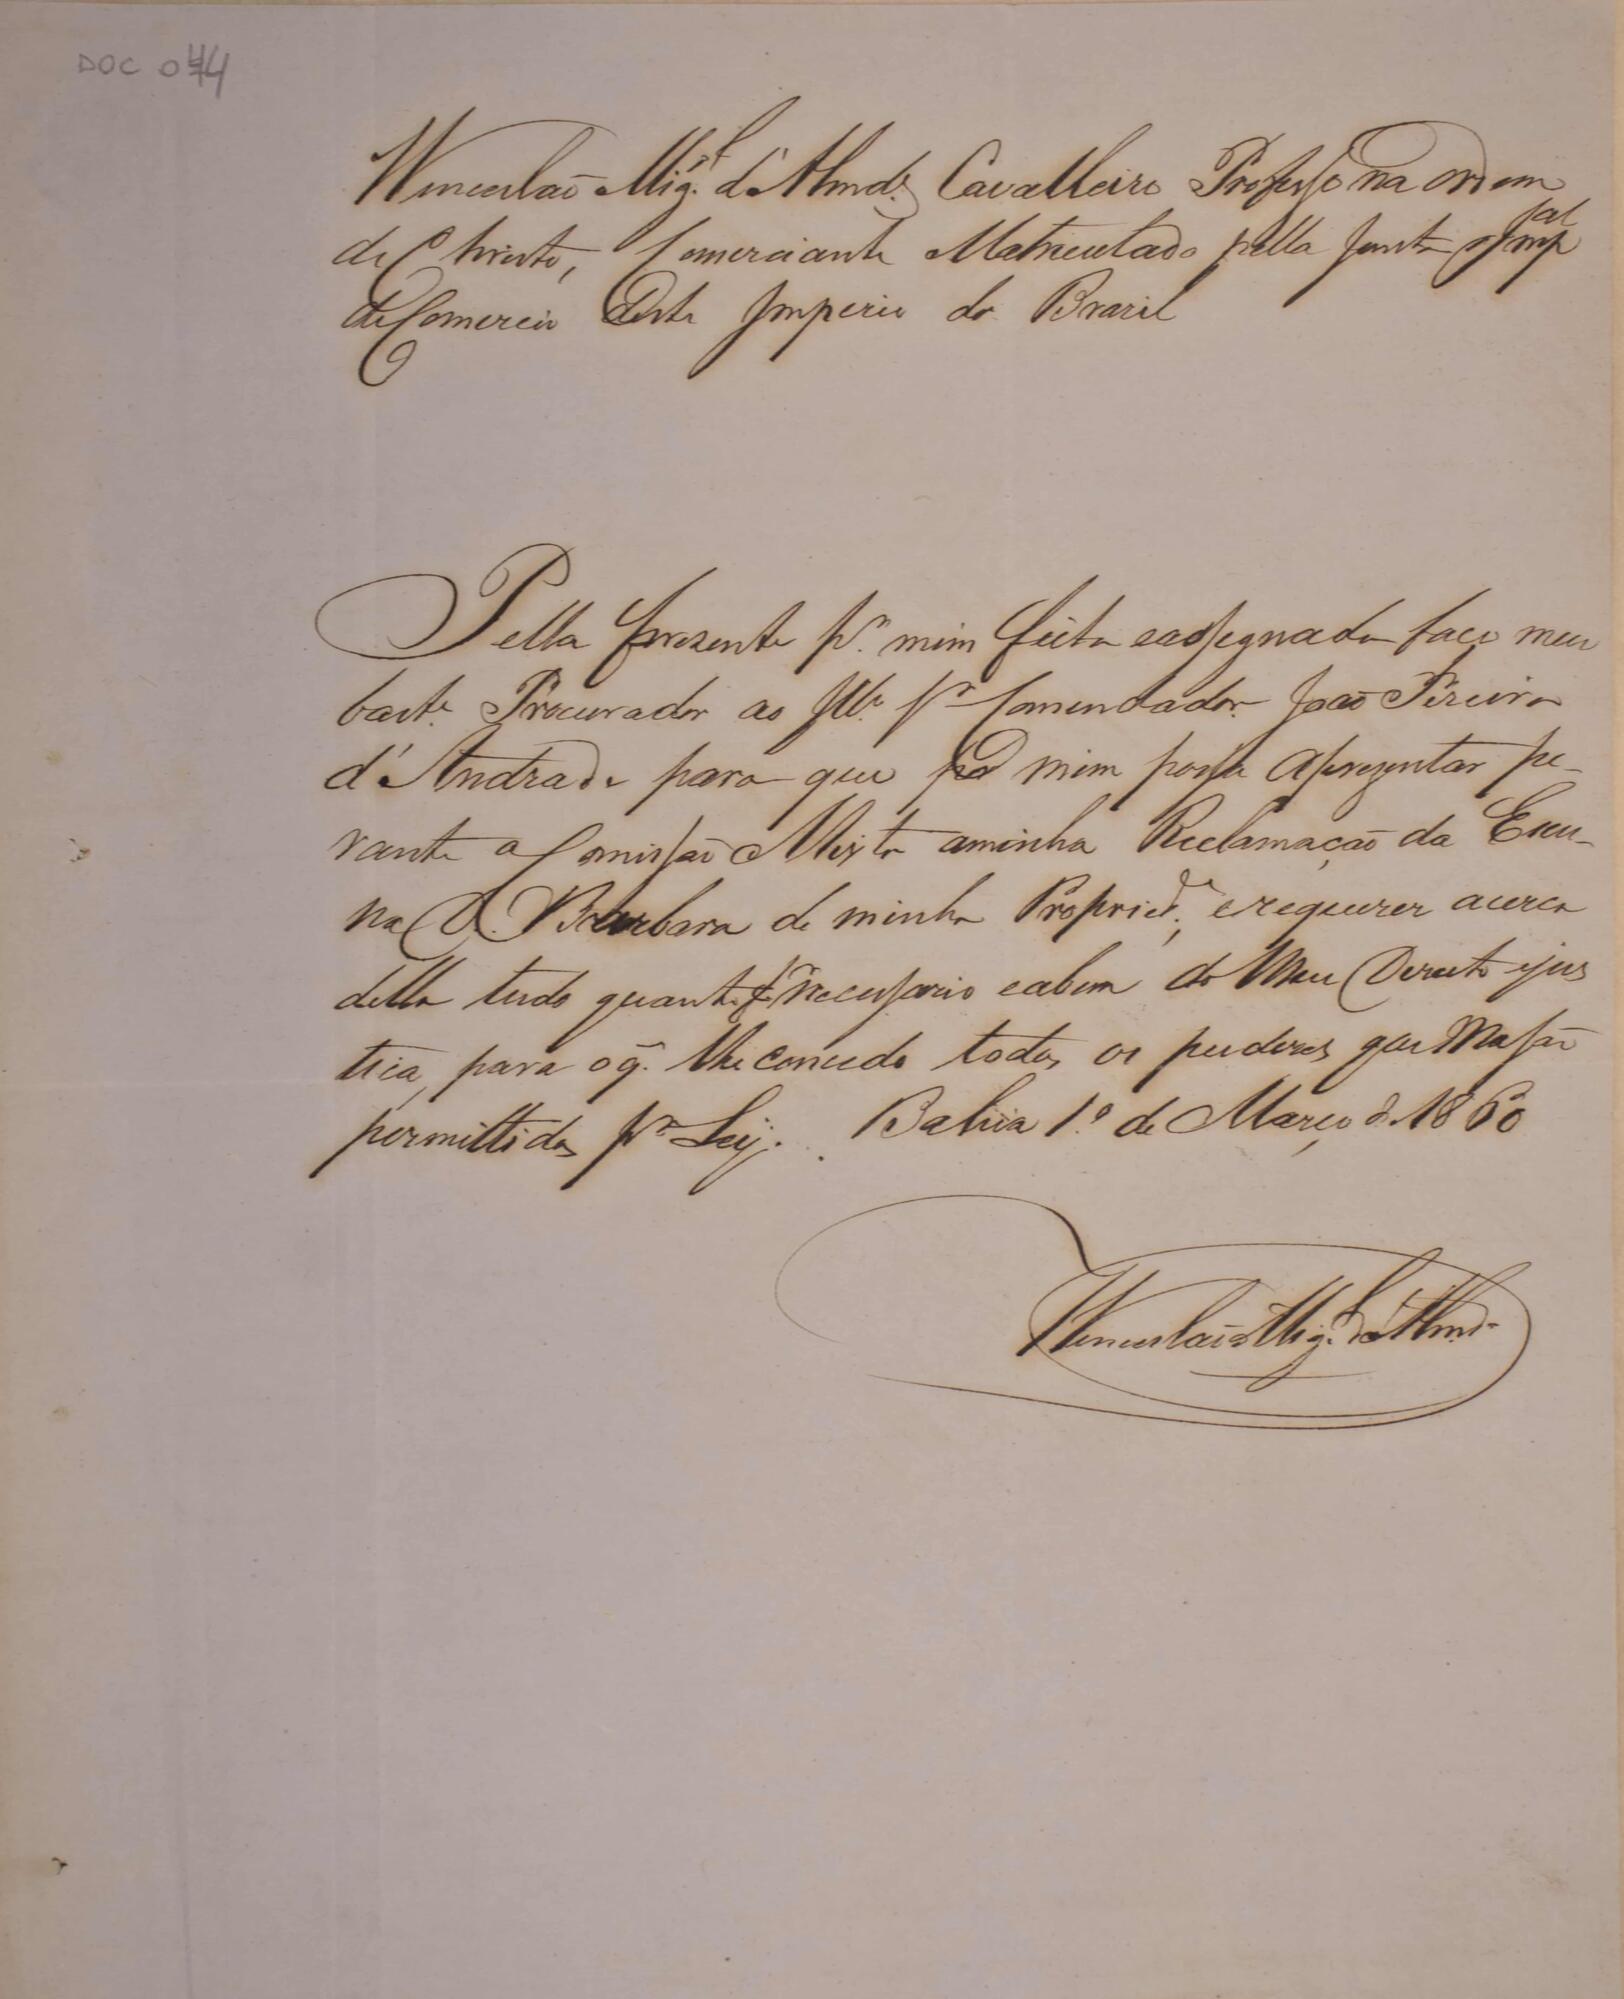 DOC 044
Wenceslaō Mig.el d'Almd.a Cavalleiro Professo na ordem
de Christo, Comerciante Matriculado pella Junta Imp.al
de Comercio deste Imperio do Brazil
Pella prezente p.r mim feita eassegnada faço meu
bast.e Procurador ao Ill.mo S.r Comendador João Pereira
d'Andrade para que por mim possa aprezentar pe-
rante a Comissaō Mixta aminha Reclamação da Escu-
na D. Barbara de minha Propried.e, erequerer acerca
della tudo quanto for necessario eabem do Meu Direito ejus
tiça, para oq. lhe concedo todos os puderes que Me saō
permittidos p.r Ley. Bahia 1.º de Março d. 1860
Wenceslaō Mig.el d'Almd.a